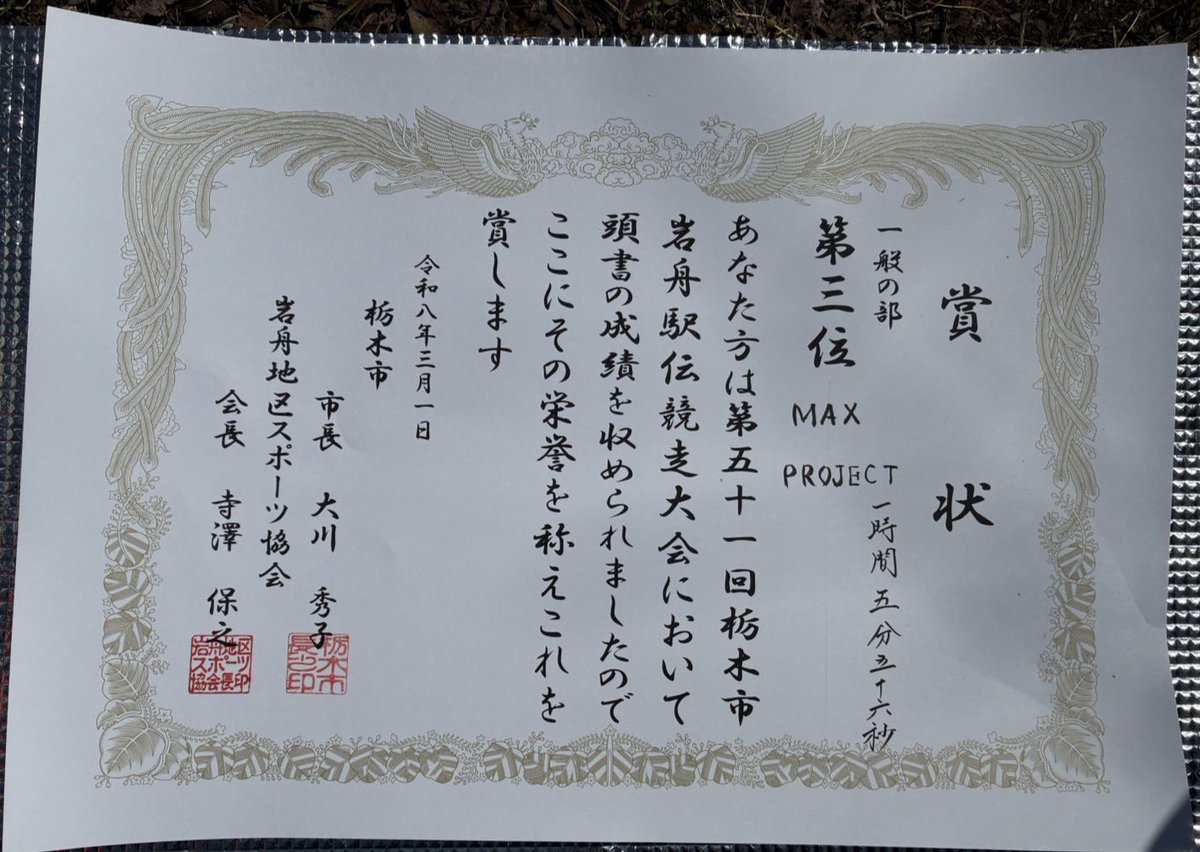 賞状
一般の部
第三位 MAX PROJECT
一時間五分五十六秒
あなた方は第五十一回栃木市
岩舟駅伝競走大会において
頭書の成績を収められましたので
ここにその栄誉を称えこれを
賞します
令和八年三月一日
栃木市
市長 大川 秀子
岩舟地区スポーツ協会
会長 寺澤 保之
栃木市長之印
岩舟地区スポーツ協会長印